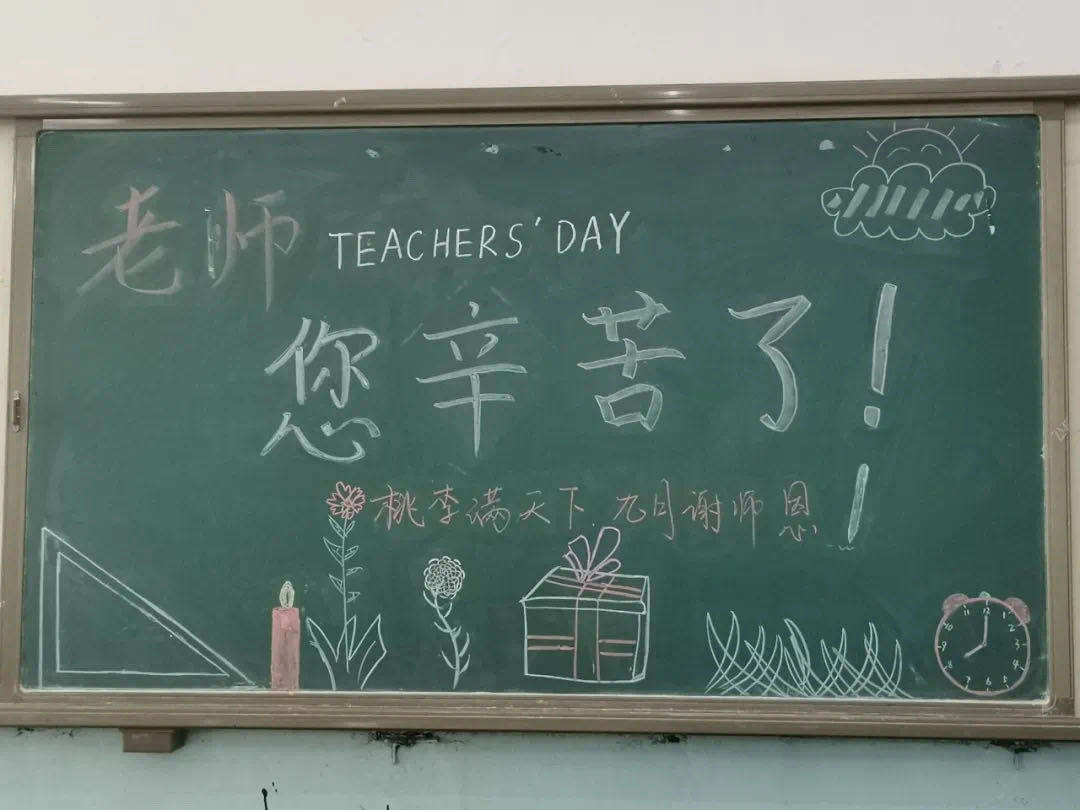 老师 TEACHERS' DAY
您辛苦了!
桃李满天下 九月谢师恩!
11 12 1
10 2
9 3
8 4
7 6 5